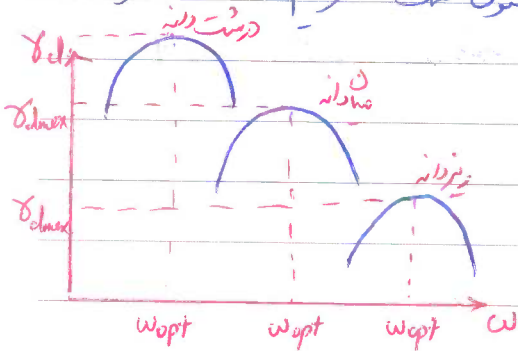 درشت دانه
γd
γdmax
میان دانه
γdmax
ریزدانه
ωopt ωopt ωopt ω